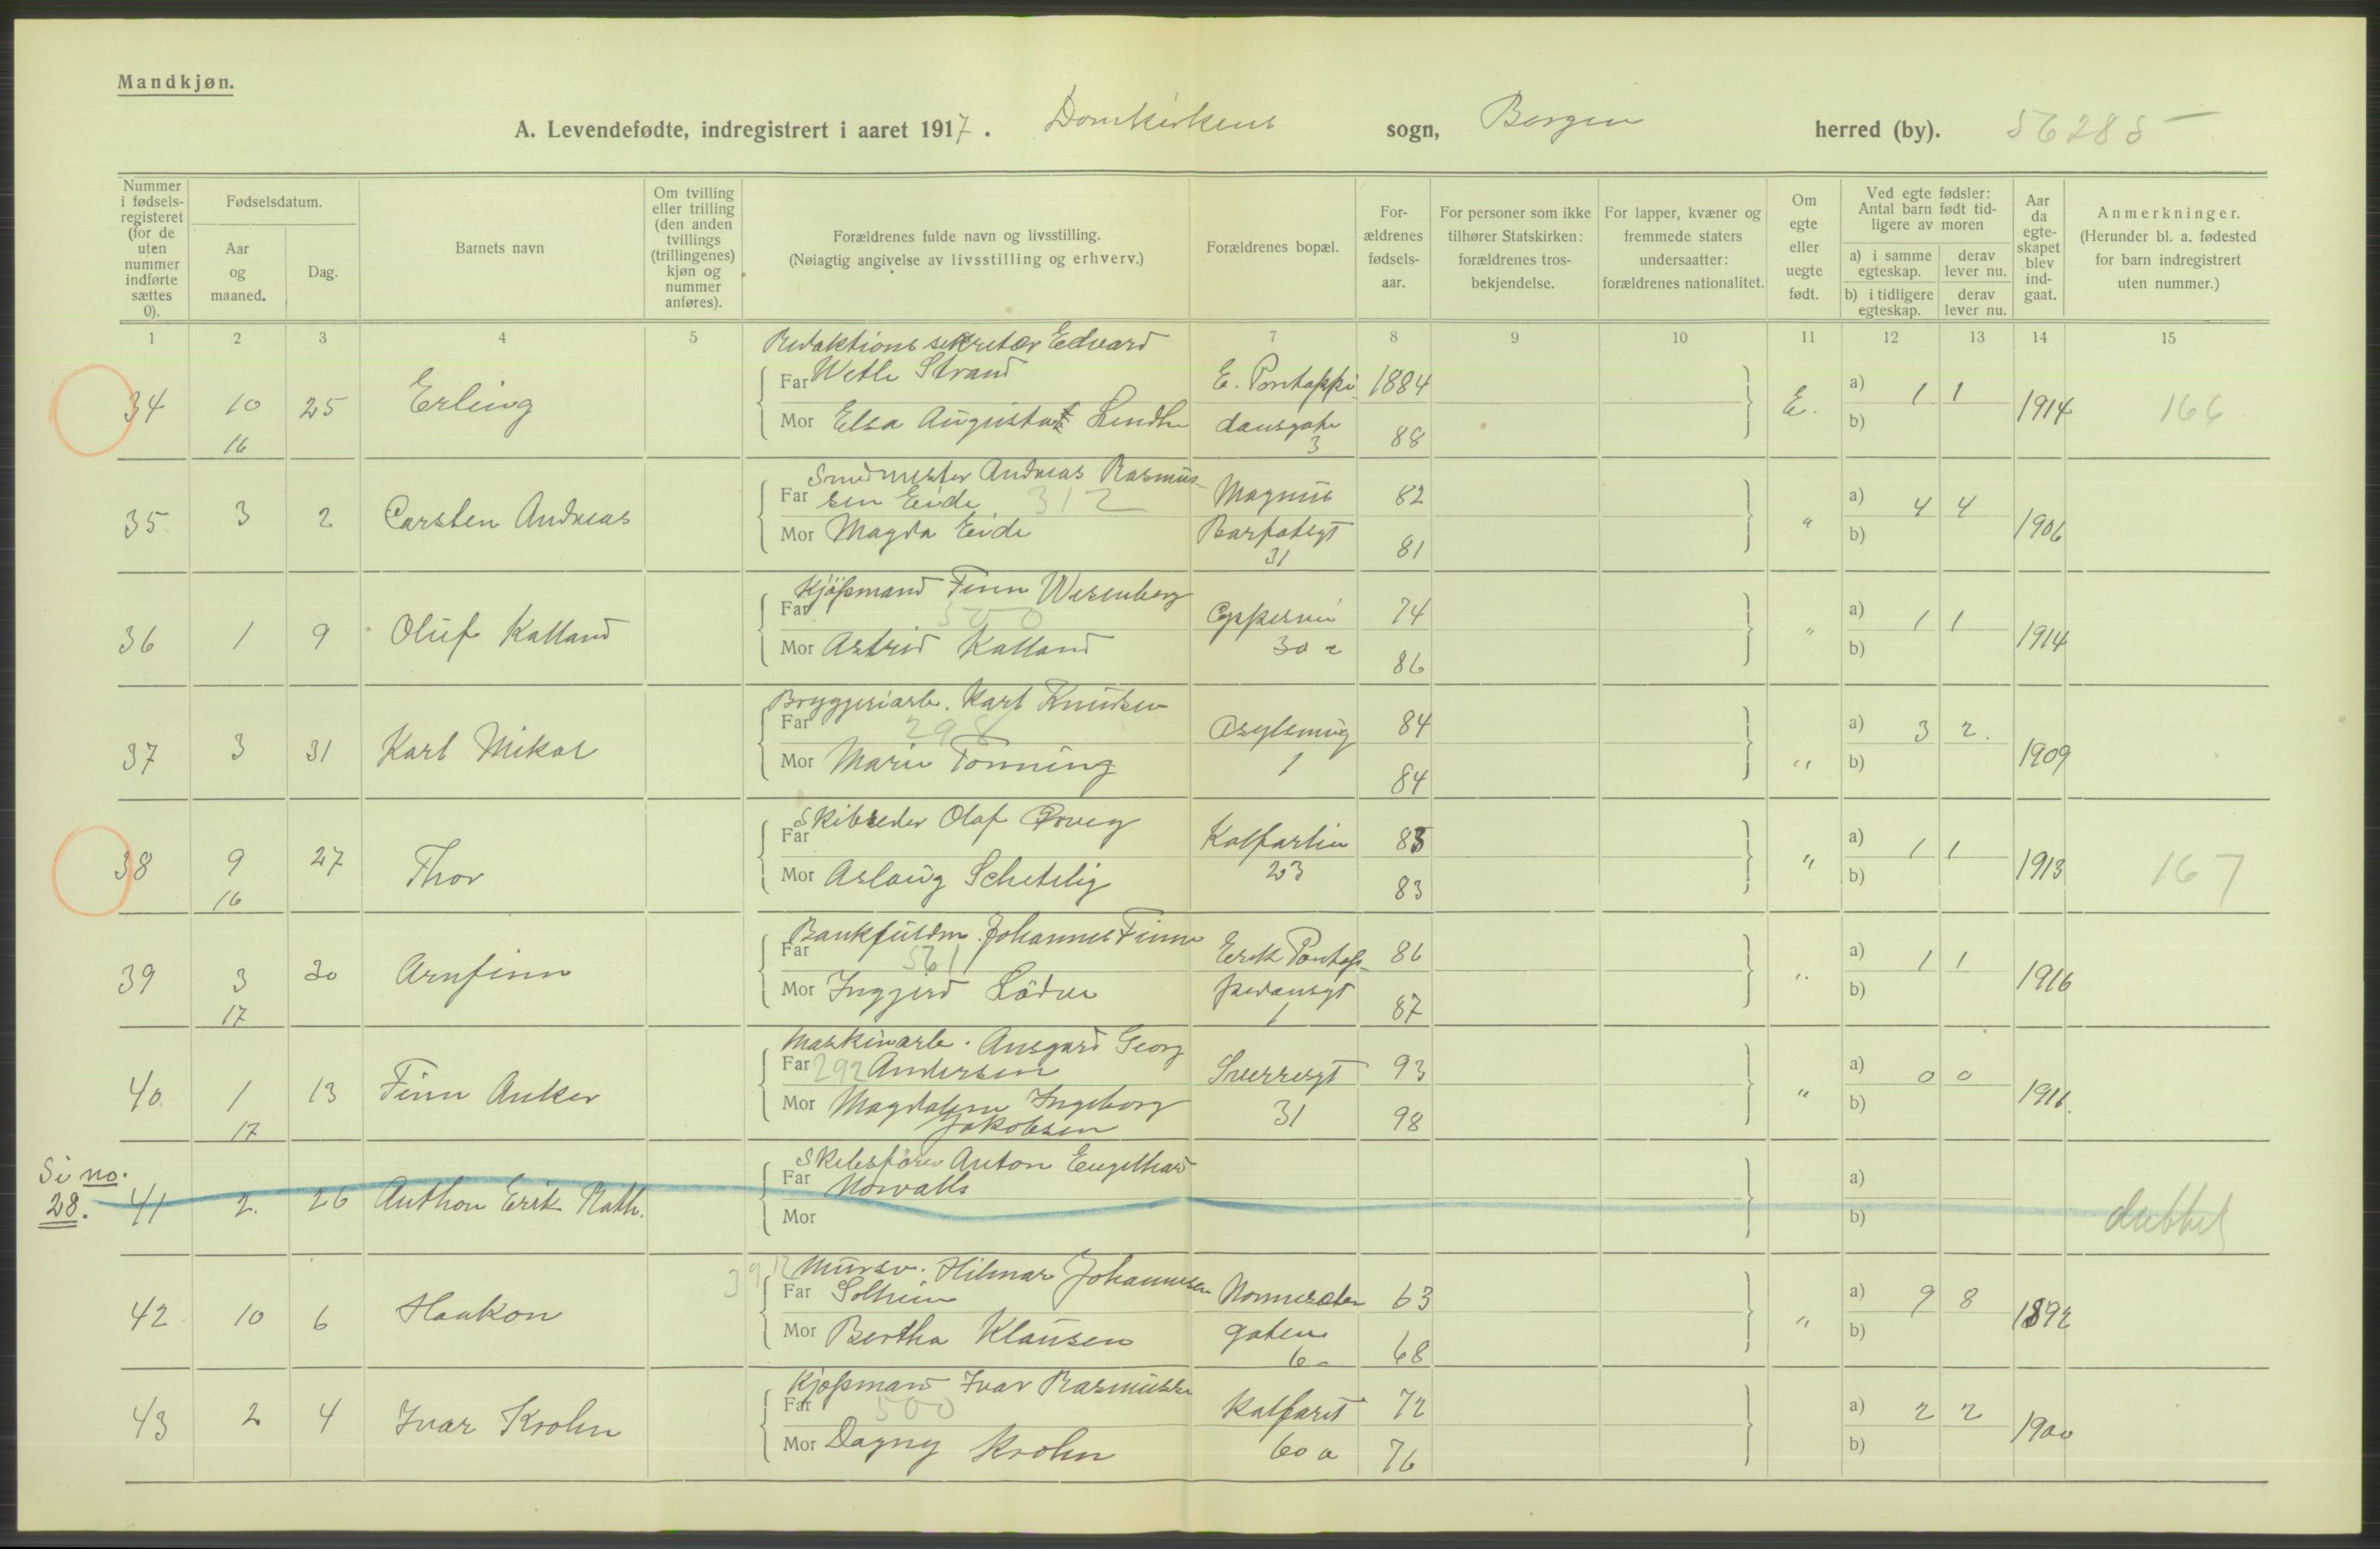 Mandkjøn.
A. Levendefødte, indregistrert i aaret 1917. Domkirkens sogn, Bergen herred (by). 56285
Nummer i fødsels-registeret (for de uten nummer indførte sættes 0).
Fødselsdatum.
Aar og maaned.
Dag.
Barnets navn
Om tvilling eller trilling (den anden tvillings (trillingenes) kjøn og nummer anføres).
Forældrenes fulde navn og livsstilling.
(Nøiagtig angivelse av livsstilling og erhverv.)
Forældrenes bopæl.
For-ældrenes fødsels-aar.
For personer som ikke tilhører Statskirken: forældrenes tros-bekjendelse.
For lapper, kvæner og fremmede staters undersaatter: forældrenes nationalitet.
Om egte eller uegte født.
Ved egte fødsler: Antal barn født tid-ligere av moren
a) i samme egteskap. derav lever nu.
b) i tidligere egteskap. derav lever nu.
Aar da egte-skapet blev ind-gaat.
Anmerkninger.
(Herunder bl. a. fødested for barn indregistrert uten nummer.)
1 2 3 4 5 7 8 9 10 11 12 13 14 15
Redaktionssekretær Edvard
34 10 25 Erling Far Wetle Strand E. Pontoppi- 1884 E. a) 1 1 1914 166
16 Mor Elsa Augusta Lindh dansgate 3 88 b)
Smedmester Andreas Rasmus-
35 3 2 Carsten Andreas Far sen Eide 312 Magnus 82 " a) 4 4 1906
Mor Magda Eide Barfotsgt 31 81 b)
Kjøpmand Finn Wesenberg
36 1 9 Oluf Kalland Far 500 74 " a) 1 1 1914
Mor Astrid Kalland 30 86 b)
Bryggeriarb. Karl Knudsen
37 3 31 Karl Mikal Far 298 Asylsmug 84 " a) 3 2. 1909
Mor Marie Tonning 1 84 b)
Skibsreder Olaf Ørveg
38 9 27 Thor Far Kalfarlien 83 " a) 1 1 1913 167
16 Mor Aslaug Schetelig 23 83 b)
Bankfuldm. Johannes Finne
39 3 30 Arnfinn Far 561 Erik Pontop- 86 " a) 1 1 1916
17 Mor Ingjerd pedansgt 1 87 b)
Maskinarb. Ansgard Georg
40 1 13 Finn Anker Far 292 Andersen Sverresgt 93 " a) 0 0 1916.
17 Mor Magdalene Ingeborg Jakobsen 31 98 b)
Si no. 28.
Skibsfører Anton Engelhard
41 2. 26 Anthon Erik Rath. Far Norvalls a) dubbel
Mor b)
392 Mursv. Hilmar Johannesen
42 10 6 Haakon Far Solheim Nonneseter 63 " a) 9 8 1892
Mor Bertha Klausen gaten 6 68 b)
Kjøpmand Ivar Rasmussen
43 2 4 Ivar Krohn Far 500 Kalfaret 72 a) 2 2 1900
Mor Dagny Krohn 60 a 76 b)